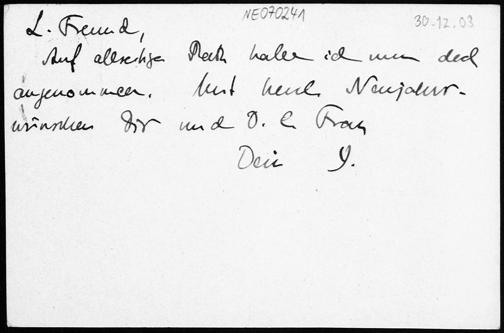 NE070241
30.12.03
L. Freund,
Auf allseitigen Rath habe ich nun doch
angenommen. Mit herzl. Neujahrs-
wünschen Dir und D. l. Frau
Dein J.